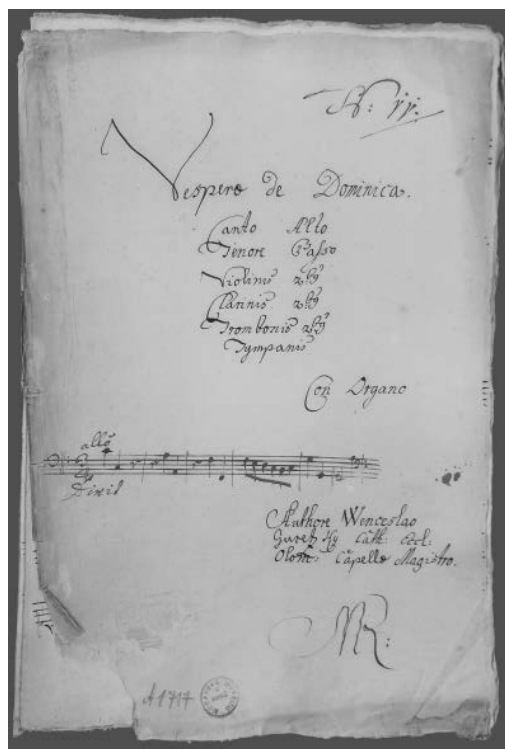 Vespere de Dominica.
Canto Alto
Tenore Basso
Violinis 2bus
Clarinis 2bus
Trombonis 2bus
Tympanis
Con Organo
allo
Dixit
Authore Wenceslao
Cath: Eccl:
Olom: Capellae Magistro.
A 1717